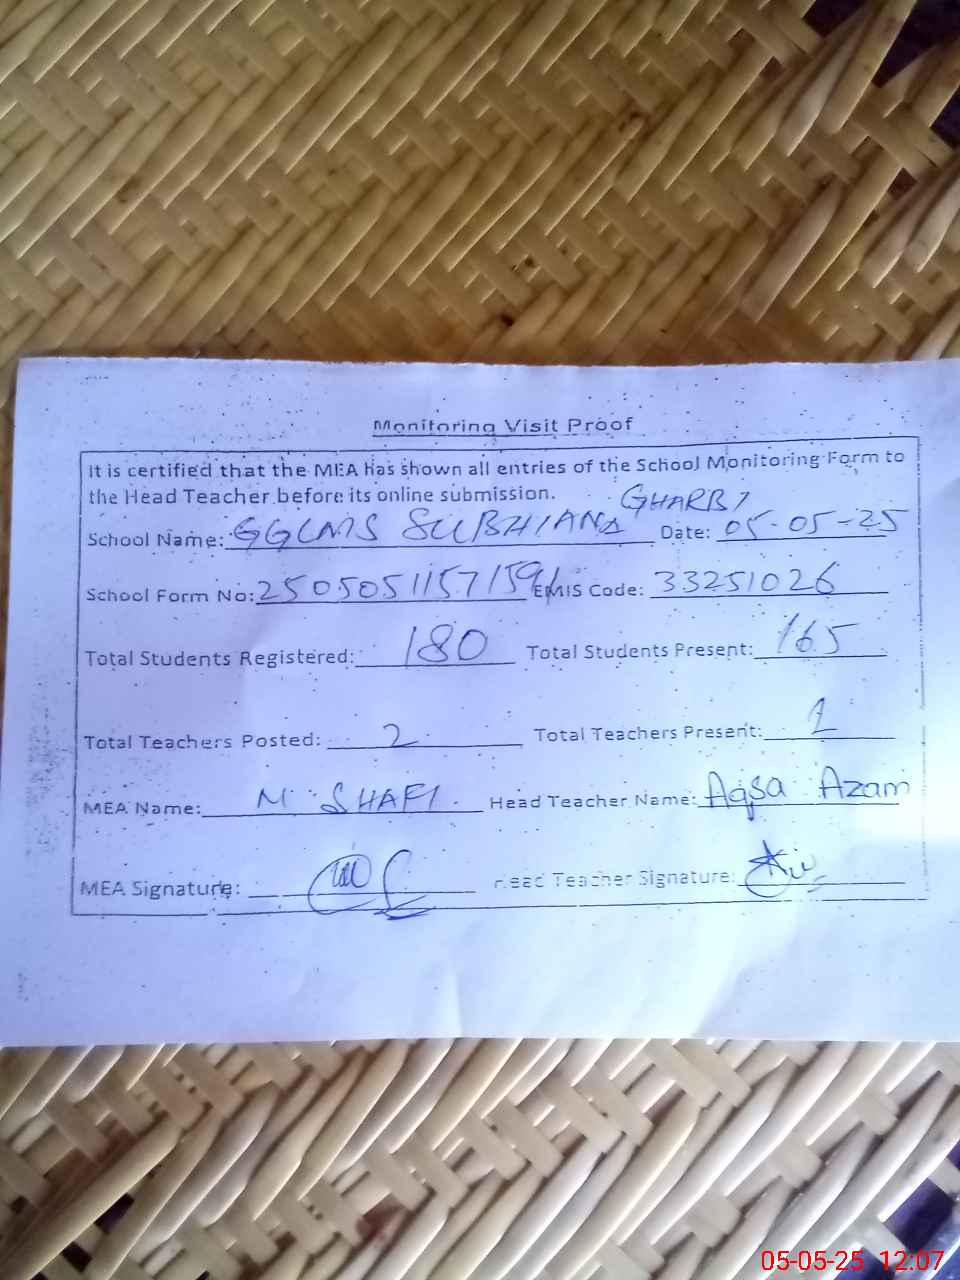 Monitoring Visit Proof
It is certified that the MEA has shown all entries of the School Monitoring Form to
the Head Teacher before its online submission.
School Name: GGCMS SUBHIANA GHARBI Date: 05-05-25
School Form No: EMIS Code: 33251026
Total Students Registered: 180 Total Students Present: 165
Total Teachers Posted: 2 Total Teachers Present: 1
MEA Name: M SHAFI. Head Teacher Name: Aqsa Azam
MEA Signature: Head Teacher Signature:
05-05-25 12:07